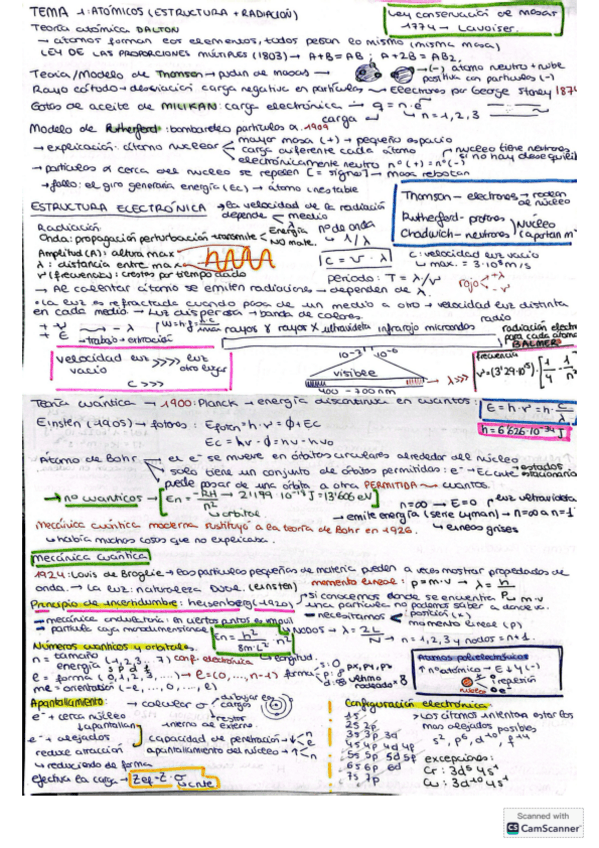 TEMA 1: ATÓMICOS (ESTRUCTURA + RADIACIÓN)
Ley conservación de masas
1774 → Lavoiser.
Teoría atómica DALTON
→ átomos forman los elementos, todos pesan lo mismo (misma masa)
LEY DE LAS PROPORCIONES MÚLTIPLES (1803) → A+B = AB ; A+2B = AB2,
Teoría/Modelo de Thomson → pudin de pasas
(-) átomo neutro → nube
positiva con partículas (-)
Rayo cátodo → desviación carga negativa en partículas → electrones por George Stoney 1874
Gotas de aceite de MILIKAN: carga electrónica → q = n·e
carga ↵ ↳ n = 1, 2, 3
Modelo de Rutherford: bombardeo partículas α. 1909
→ explicación: átomo nuclear
mayor masa (+) → pequeño espacio
carga diferente cada átomo
electrónicamente neutro nº(+) = nº(-)
núcleo tiene neutrones,
si no hay desequili
→ partículas α cerca del núcleo se repelen (= signo) → masa rebotan
→ fallo: el giro generaría energía (Ec) → átomo inestable
Thomson → electrones → rodean
el núcleo
Rutherford → protones
Chadwich → neutrones
NÚCLEO
(aportan m
ESTRUCTURA ELECTRÓNICA
→ la velocidad de la radiación
depende medio
Radiación
Onda: propagación perturbación → transmite
Energía
NO mate.
nº de onda
↳ 1/λ
Amplitud (A): altura max
λ: distancia entre max
ν (frecuencia): crestas por tiempo dado
C = ν · λ
c: velocidad luz vacío
↳ max. = 3·10⁸ m/s
periodo: T = λ/v
rojo
→ Al calentar átomo se emiten radiaciones → dependen de λ.
• La luz es refractada cuando pasa de un medio a otro → velocidad luz distinta
en cada medio → luz dispersa → banda de colores.
radio
rayos γ rayos X ultravioleta infrarrojo microondas
↳ trabajo → extracción
radiación electr
para cada átomo
BALMER
velocidad luz >>>> luz
vacío otro lugar
c >>>
10⁻³ 10⁻⁶
visible
400 – 700 nm
λ >>>
frecuencia
Teoría cuántica → 1900: Planck → energía discontinua en cuantos:
E = h·ν = h·c/λ
h = 6'626·10⁻³⁴ J
Einsten (1905) → fotones: Efoton = h·ν = ϕ + Ec
Ec = hν - ϕ = hν - hν₀
Átomo de Bohr
el e⁻ se mueve en órbitas circulares alrededor del núcleo
solo tiene un conjunto de órbitas permitidas: e⁻ → E cnte → estados
estacionarios
puede pasar de una órbita a otra PERMITIDA → cuantos.
→ nº cuánticos → En = -RH/n² → 2'179·10⁻¹⁸ J = 13'606 eV
↳ orbital.
n=∞ → E=0
luz ultravioleta
→ emite energía (serie Lyman) → n=∞ a n=1
↳ líneas grises
Mecánica cuántica moderna sustituyó a la teoría de Bohr en 1926.
↳ había muchas cosas que no explicaba.
Mecánica cuántica
1924: Louis de Broglie → las partículas pequeñas de materia pueden a veces mostrar propiedades de
onda. → La luz: naturaleza DUAL. (einsten)
momento lineal: p = m·v → λ = h/
P m·v
Principio de incertidumbre: heisenberg (1920)
si conocemos donde se encuentra
una partícula no podemos saber a donde va.
→ necesitamos
posición (x)
momento lineal (p)
→ mecánica ondulatoria: en ciertos puntos es
→ partícula caja monodimensional
En = n²h²/8m·L²
→ NODOS → λ = 2L/n → n = 1, 2, 3 y nodos = n+1.
Números cuánticos y orbitales.
n = tamaño (1, 2, 3, ... 7) conf. electrónica
energía s p d f
↳ longitud.
l = forma (0, 1, 2, 3, ...) → l = (0, ..., n-1) forma
s: 0
p: 8
d:
px, py, pz
me = orientación (-l, ..., 0, ..., l)
Átomos polielectrónicos
↑ nº atómico → E ↓ y (-)
repulsión
núcleo e⁻
Apantallamiento: → calcular σ
dibujar los
cargas
↳ restar
e⁻ + cerca núcleo
↓ apantallan
e⁻ + alejados
interno al externo
capacidad de penetración
apantallamiento del núcleo → ↑ n
reduce atracción
↳ reduciendo de forma
efectiva la carga → Zef = Z - σ
↳ cnte
Configuración electrónica
1s
2s 2p
3s 3p 3d
4s 4p 4d 4f
5s 5p 5d 5f
6s 6p 6d
7s 7p
→ Los átomos intentan estar los
mas alejados posibles
s², p⁶, d¹⁰, f¹⁴
excepciones:
Cr: 3d⁵ 4s¹
Cu: 3d¹⁰ 4s¹
Scanned with
CS CamScanner